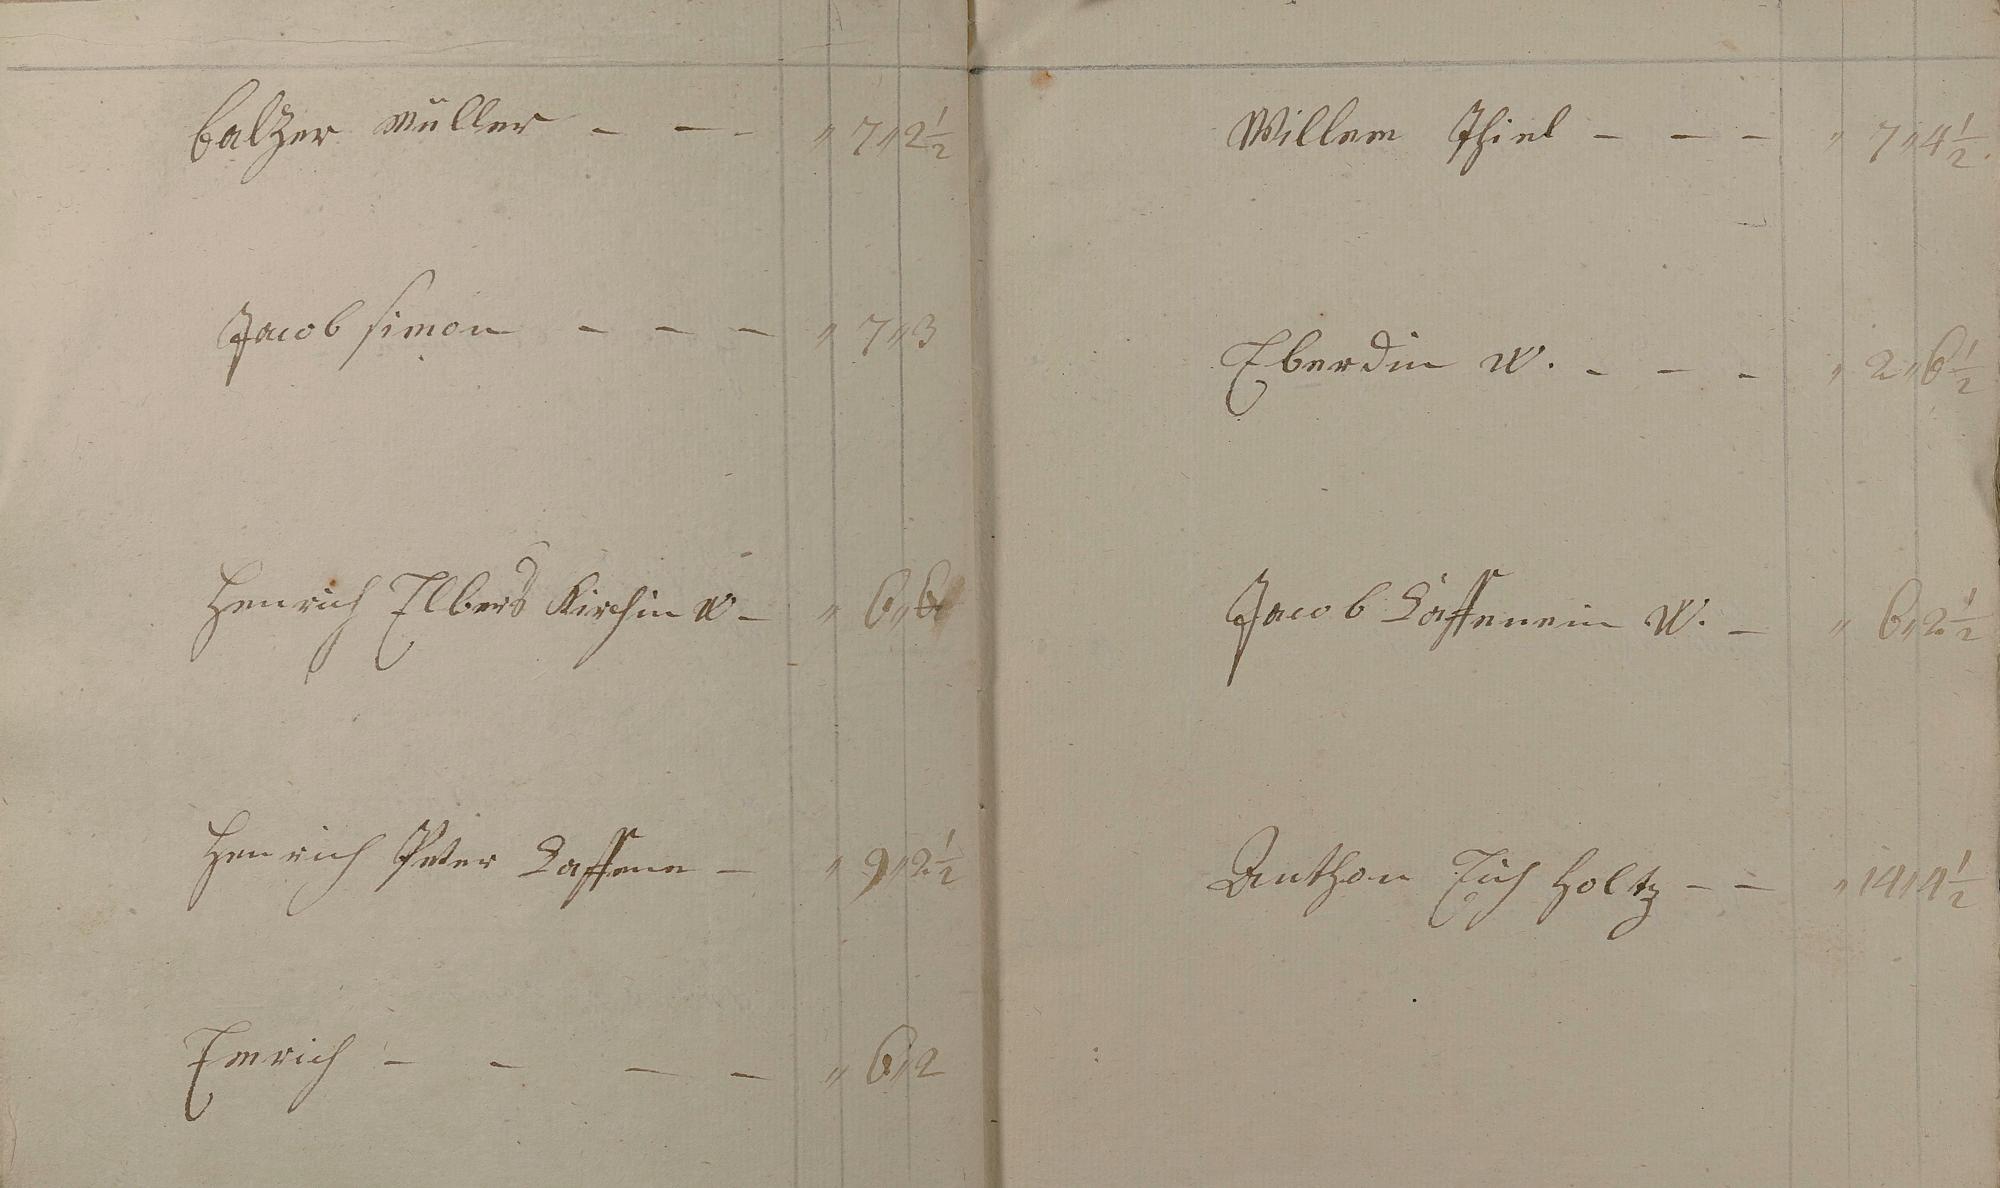 Balzer Müller - - - " 7 " 2 1/2
Jacob Simon - - - " 7 " 3
Henrich Elbers Kirchin W - " 6 " 6
Henrich Peter Laffene - " 9 " 2 1/2
Emrich - - - - " 6 " 2
Willem Thiel - - - " 7 " 4 1/2.
Eberdin W. - - - " 2 " 6 1/2
Jacob Laffenein W. - " 6 " 2 1/2
Anthon Eich Holtz - - " 14 " 4 1/2